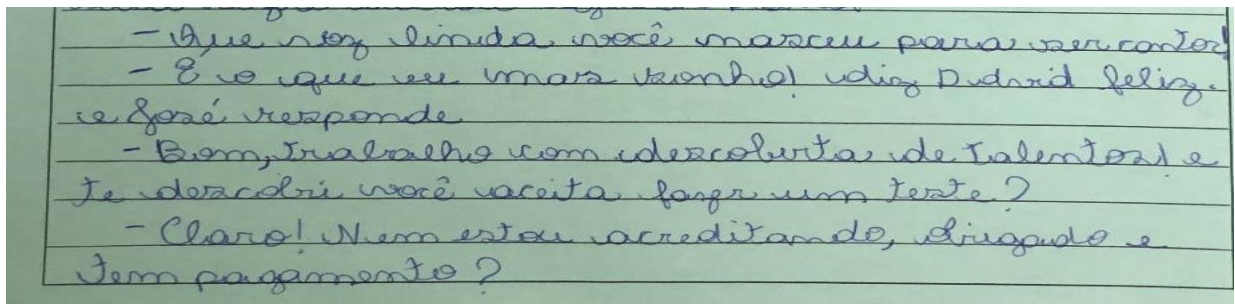 - Que voz linda você nasceu para ser cantor!
- É o que eu mais sonho! diz David feliz.
e José responde
- Bom, trabalho com descoberta de talentos! e
te descobri você aceita fazer um teste?
- Claro! Nem estou acreditando, obrigado e
tem pagamento?